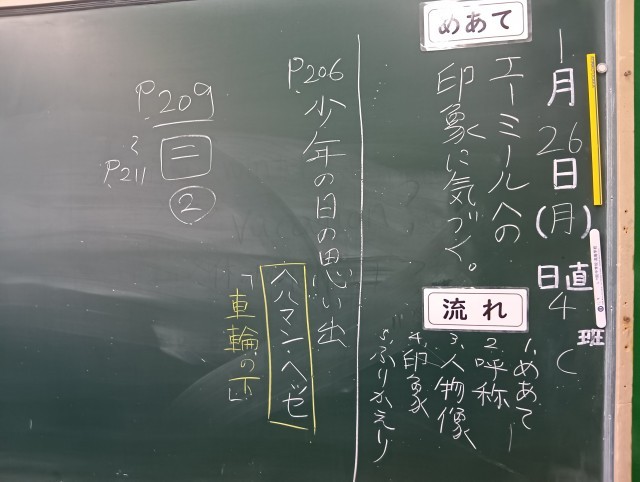 1月26日(月)
日直
4班
C
めあて
エーミールへの
印象に気づく。
流れ
1.めあて
2.呼称
3.人物像
4.印象
5.ふりかえり
P206
少年の日の思い出
ヘルマン・ヘッセ
「車輪の下」
P209
〜
P211
二
②